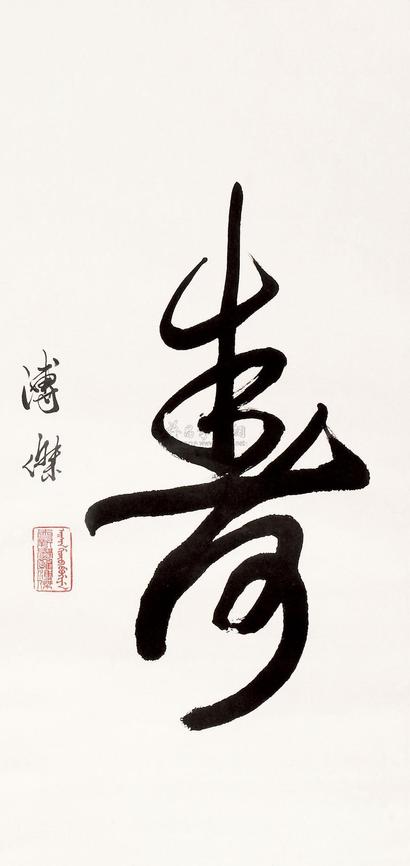 壽
溥傑